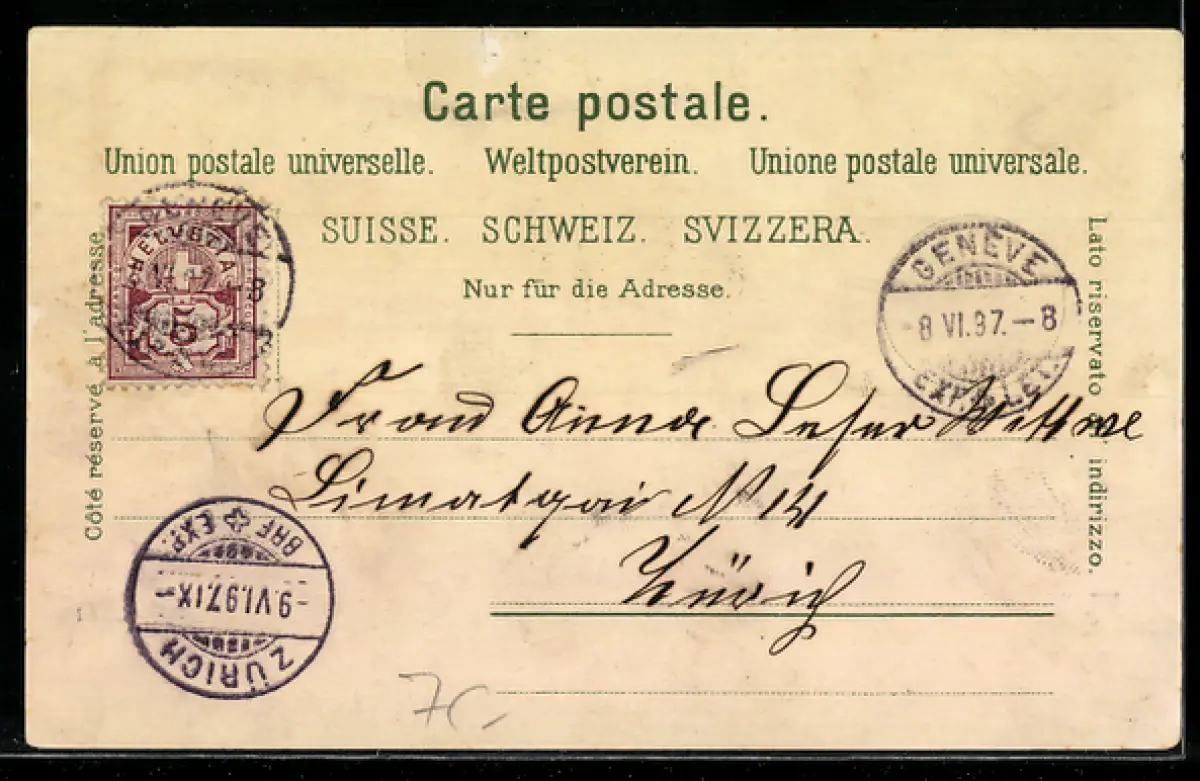 Carte postale.
Union postale universelle. Weltpostverein. Unione postale universale.
SUISSE. SCHWEIZ. SVIZZERA.
Nur für die Adresse.
Côté réservé à l'adresse.
Lato riservato indirizzo.
HELVETIA
5
GENÈVE
-8 VI.97.-8
EXP. LET.
Anna Wittwe
Limatquai N 14
Zürich
ZÜRICH
-9.VI.97.IX-
BHF EXP.